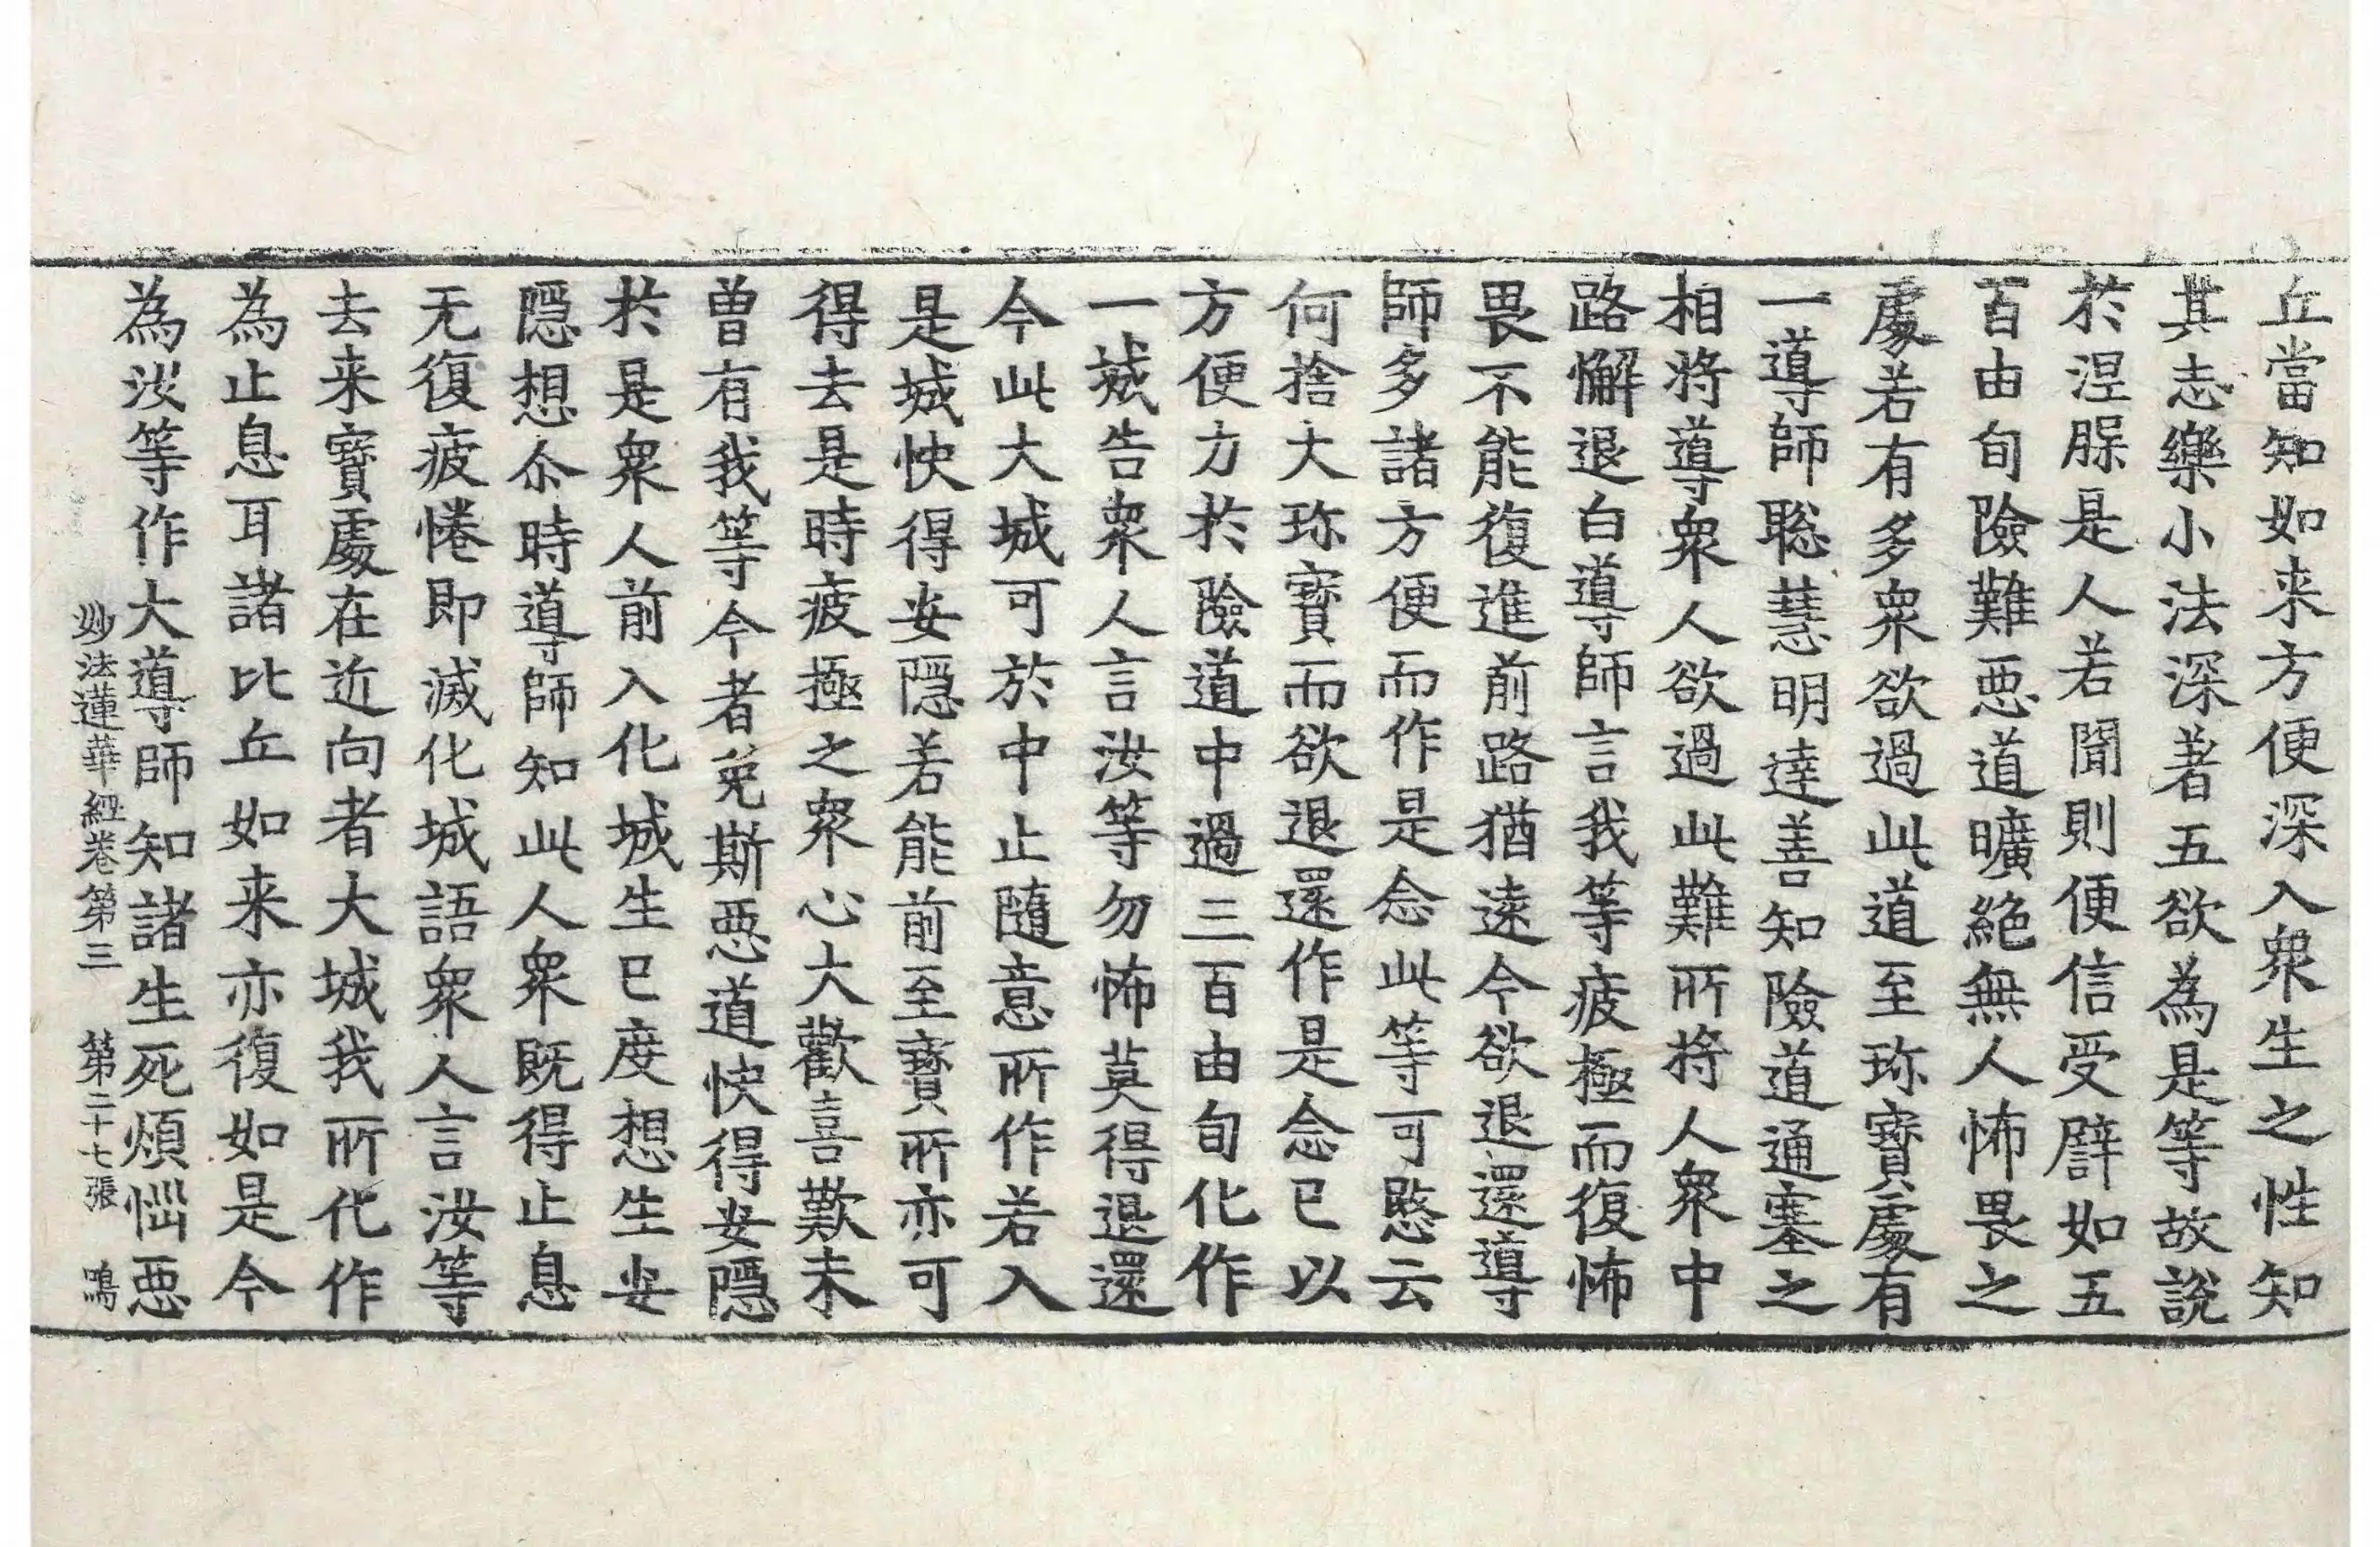 丘當知如来方便深入衆生之性知
其志樂小法深著五欲為是等故說
於涅脲是人若聞則便信受譬如五
百由旬險難惡道曠絕無人怖畏之
處若有多衆欲過此道至珎寶處有
一導師聡慧明達善知險道通塞之
相將導衆人欲過此難所將人衆中
路懈退白導師言我等疲極而復怖
畏不能復進前路猶遠今欲退還導
師多諸方便而作是念此等可愍云
何捨大珎寶而欲退還作是念已以
方便力於險道中過三百由旬化作
一城告衆人言汝等勿怖莫得退還
今此大城可於中止隨意所作若入
是城快得安隱若能前至寶所亦可
得去是時疲極之衆心大歡喜歎未
曾有我等今者免斯惡道快得安隱
於是衆人前入化城生已度想生安
隱想尒時導師知此人衆既得止息
无復疲惓即滅化城語衆人言汝等
去来寶處在近向者大城我所化作
為止息耳諸比丘如来亦復如是今
為汝等作大導師知諸生死煩惱惡
妙法蓮華經卷第三 第二十七張 鳴